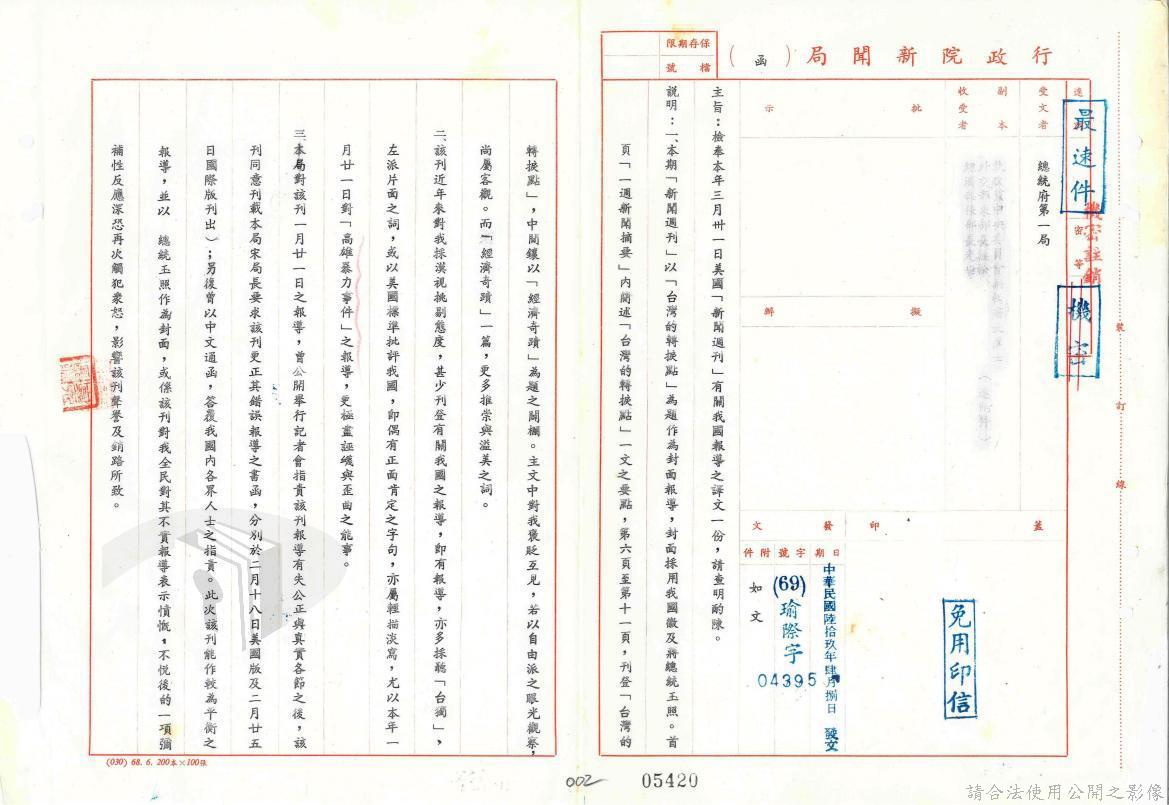 行政院新聞局（函）
保存期限
檔號
受文者
總統府第一局
速
最速件
密等
機密註銷
機密
副本
收受者
批示
擬辦
蓋印
免用印信
發文
日期
中華民國陸拾玖年肆月捌日 發文
字號
(69)瑜際字
04395
附件
如文
裝
訂
線
主旨：檢奉本年三月卅一日美國「新聞週刊」有關我國報導之譯文一份，請查明酌陳。
說明：一、本期「新聞週刊」以「台灣的轉捩點」為題作為封面報導，封面採用我國國徽及蔣總統玉照。首
頁「一週新聞摘要」內簡述「台灣的轉捩點」一文之要點，第六頁至第十一頁，刊登「台灣的
轉捩點」，中間鑲以「經濟奇蹟」為題之關欄。主文中對我褒貶互見，若以自由派之眼光觀察，
尚屬客觀。而「經濟奇蹟」一篇，更多推崇與溢美之詞。
二、該刊近年來對我採漠視挑剔態度，甚少刊登有關我國之報導，即有報導，亦多採聽「台獨」，
左派片面之詞，或以美國標準批評我國，即偶有正面肯定之字句，亦屬輕描淡寫，尤以本年一
月廿一日對「高雄暴力事件」之報導，更極盡誣衊與歪曲之能事。
三、本局對該刊一月廿一日之報導，曾公開舉行記者會指責該刊報導有失公正與真實各節之後，該
刊同意刊載本局宋局長要求該刊更正其錯誤報導之書函，分別於二月十八日美國版及二月廿五
日國際版刊出）；另復曾以中文通函，答覆我國內各界人士之指責。此次該刊能作較為平衡之
報導，並以 總統玉照作為封面，或係該刊對我全民對其不實報導表示憤慨，不悅後的一項彌
補性反應深恐再次觸犯衆怒，影響該刊聲譽及銷路所致。
(030) 68. 6. 200本×100張
002
05420
請合法使用公開之影像